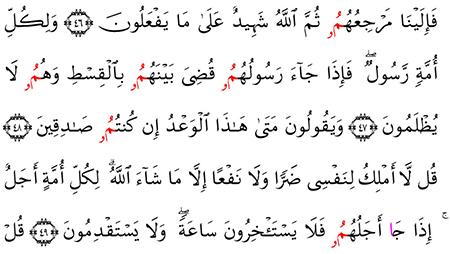 فَإِلَيْنَا مَرْجِعُهُمُۥ ثُمَّ ٱللَّهُ شَهِيدٌ عَلَىٰ مَا يَفْعَلُونَ ۝٤٦ وَلِكُلِّ
أُمَّةٍ رَّسُولٌۖ فَإِذَا جَآءَ رَسُولُهُمُۥ قُضِىَ بَيْنَهُمُۥ بِٱلْقِسْطِ وَهُمُۥ لَا
يُظْلَمُونَ ۝٤٧ وَيَقُولُونَ مَتَىٰ هَٰذَا ٱلْوَعْدُ إِن كُنتُمُۥ صَٰدِقِينَ ۝٤٨
قُل لَّآ أَمْلِكُ لِنَفْسِى ضَرًّا وَلَا نَفْعًا إِلَّا مَا شَآءَ ٱللَّهُۗ لِكُلِّ أُمَّةٍ أَجَلٌ
ۚ إِذَا جَا أَجَلُهُمُۥ فَلَا يَسْتَـْٔخِرُونَ سَاعَةًۖ وَلَا يَسْتَقْدِمُونَ ۝٤٩ قُلْ